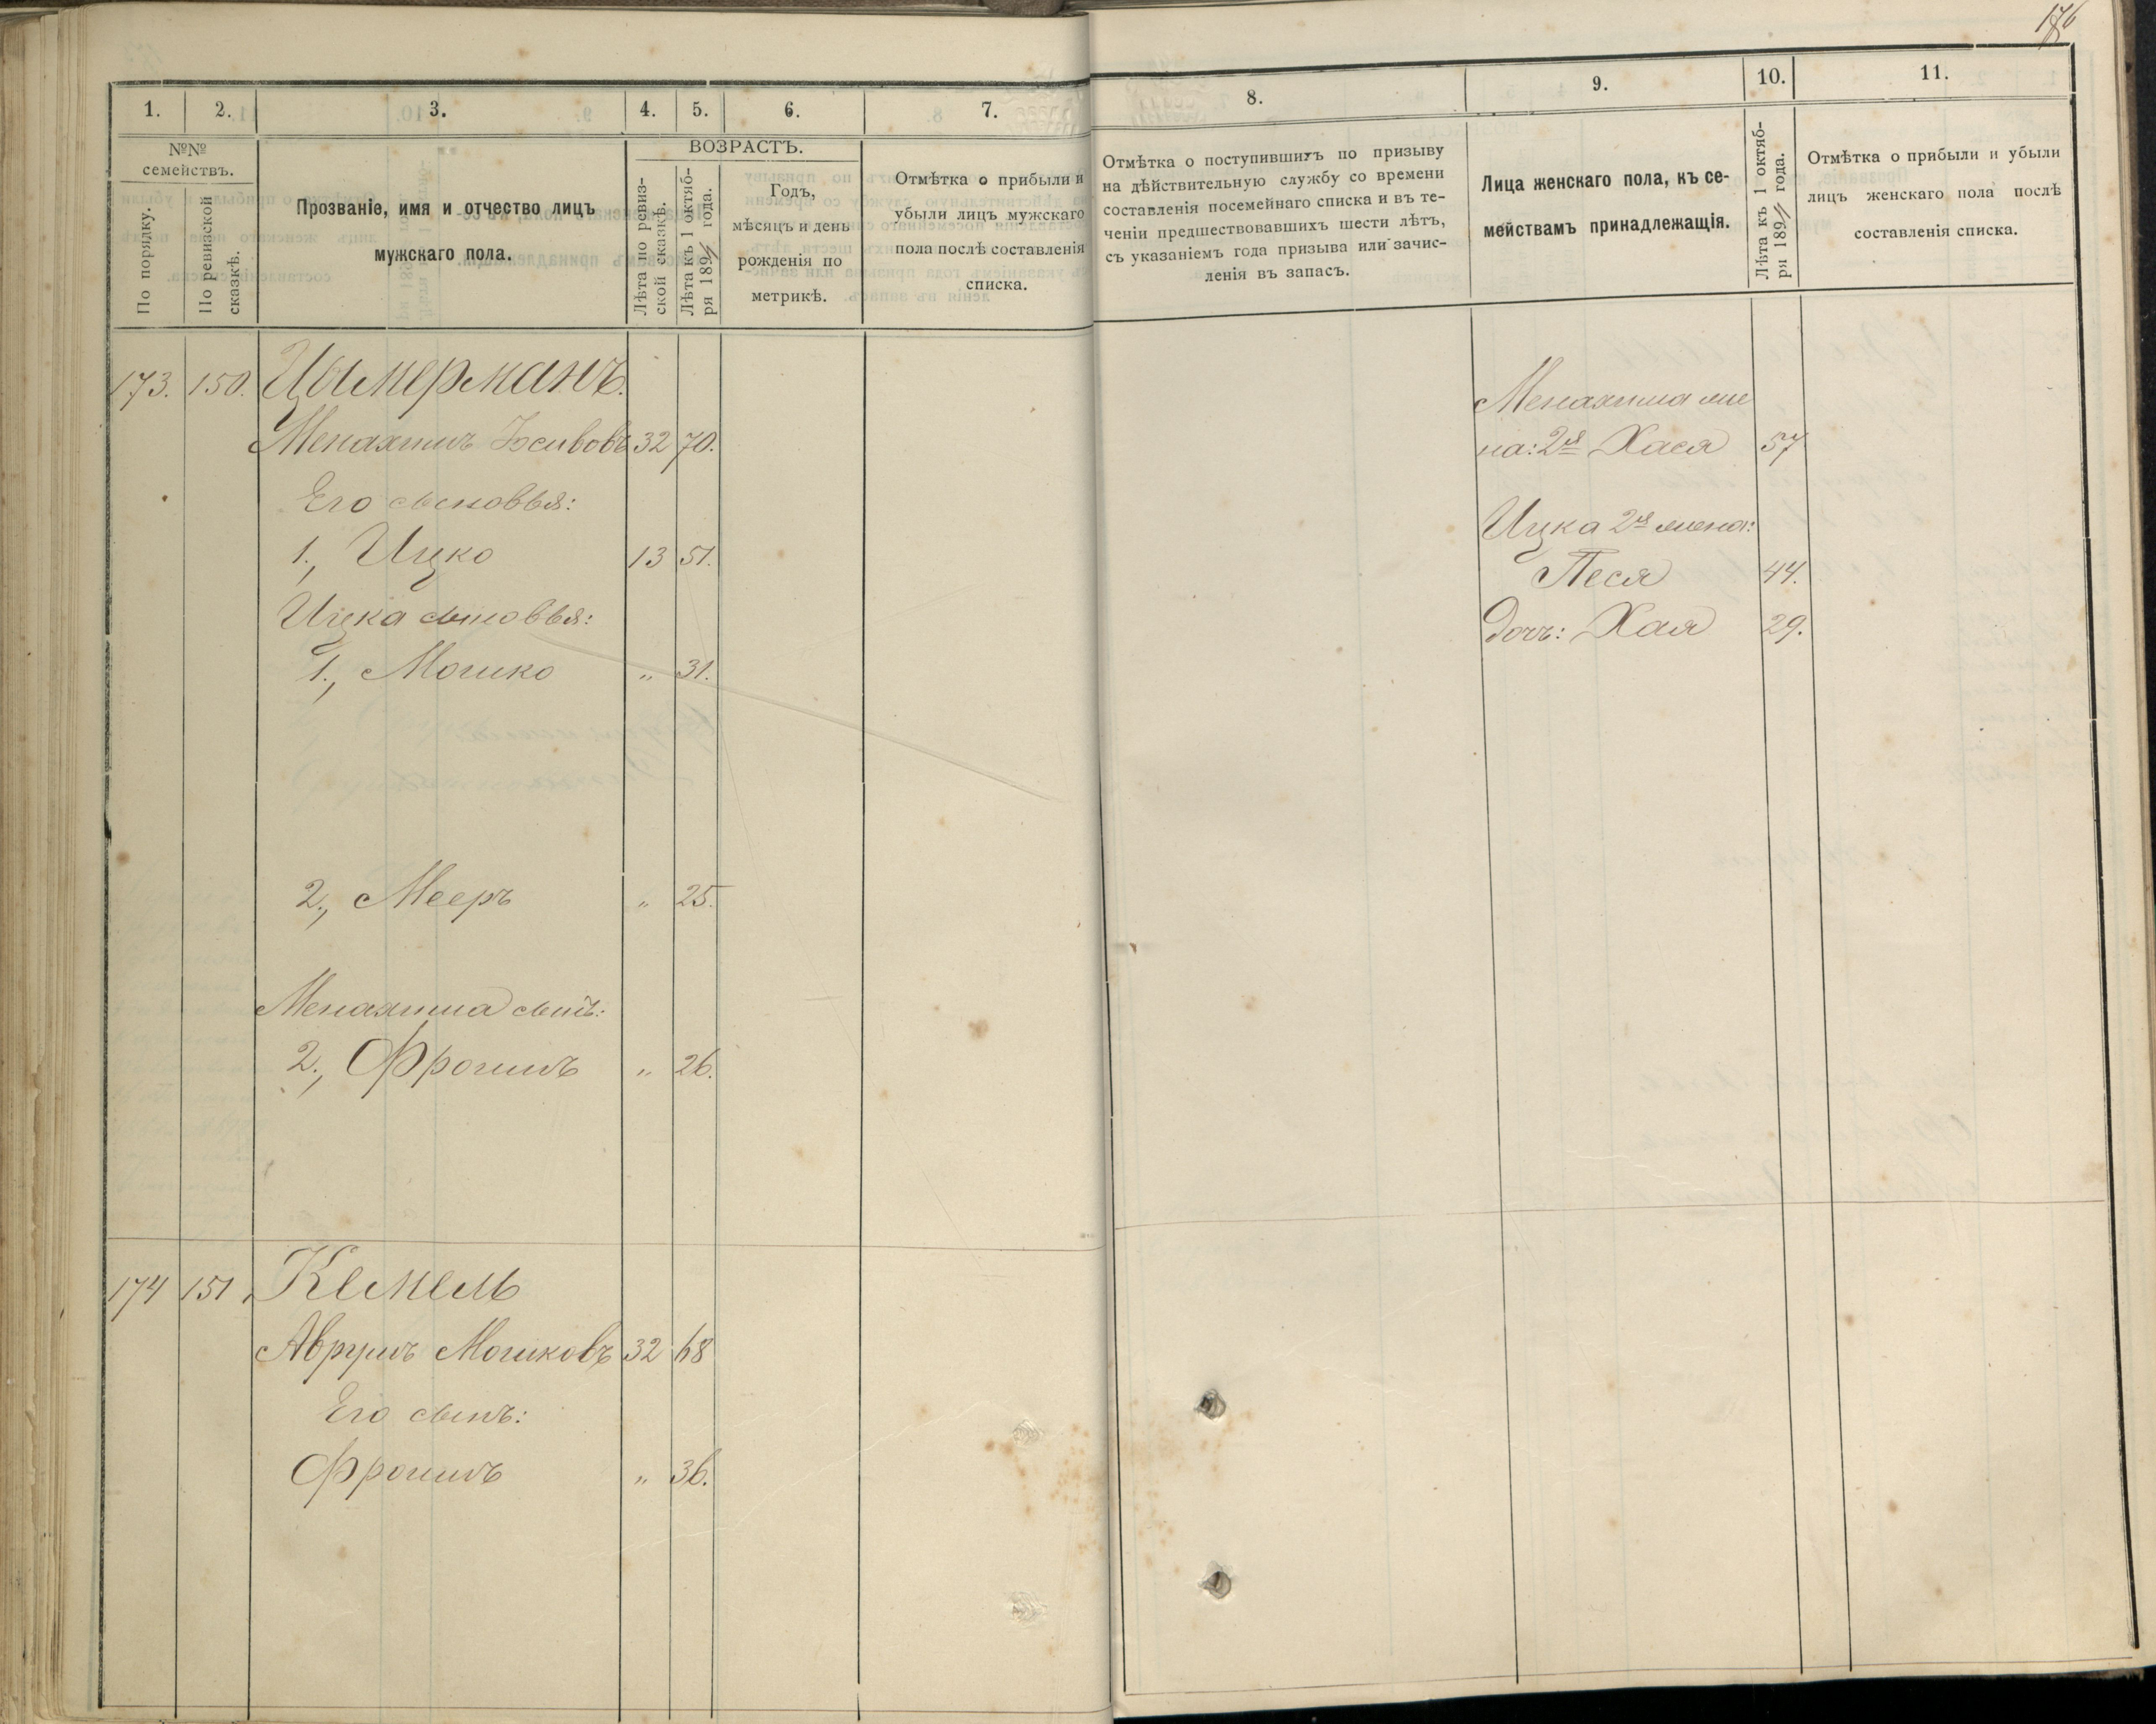 176
1.
2.
3.
4.
5.
6.
7.
8.
9.
10.
11.
№№ семействъ.
По порядку.
По ревизской сказкѣ.
Прозваніе, имя и отчество лицъ
мужскаго пола.
ВОЗРАСТЪ.
Лѣта по ревиз-
ской сказкѣ.
Лѣта къ 1 октяб-
ря 189 года.
Годъ,
мѣсяцъ и день
рожденія по
метрикѣ.
Отмѣтка о прибыли и
убыли лицъ мужскаго
пола послѣ составленія
списка.
Отмѣтка о поступившихъ по призыву
на дѣйствительную службу со времени
составленія посемейнаго списка и въ те-
ченіи предшествовавшихъ шести лѣтъ,
съ указаніемъ года призыва или зачис-
ленія въ запасъ.
Лица женскаго пола, къ се-
мействамъ принадлежащія.
Лѣта къ 1 октяб-
ря 189 года.
Отмѣтка о прибыли и убыли
лицъ женскаго пола послѣ
составленія списка.
173. 150. Цымерманъ.
Менахимъ 32 70.
Его сыновья:
1., Ицко 13 51.
Ицка сыновья:
1., Мошко " 31.
2., Мееръ " 25.
Менахима сынъ:
2., Фроимъ " 26.
Менахима же
на: 2я Хася 57
Ицка 2я жена:
Песя 44.
дочь: Хая 29.
174 151. Кемель
Аврумъ Мошковъ 32 68
Его сынъ:
Фроимъ " 36.